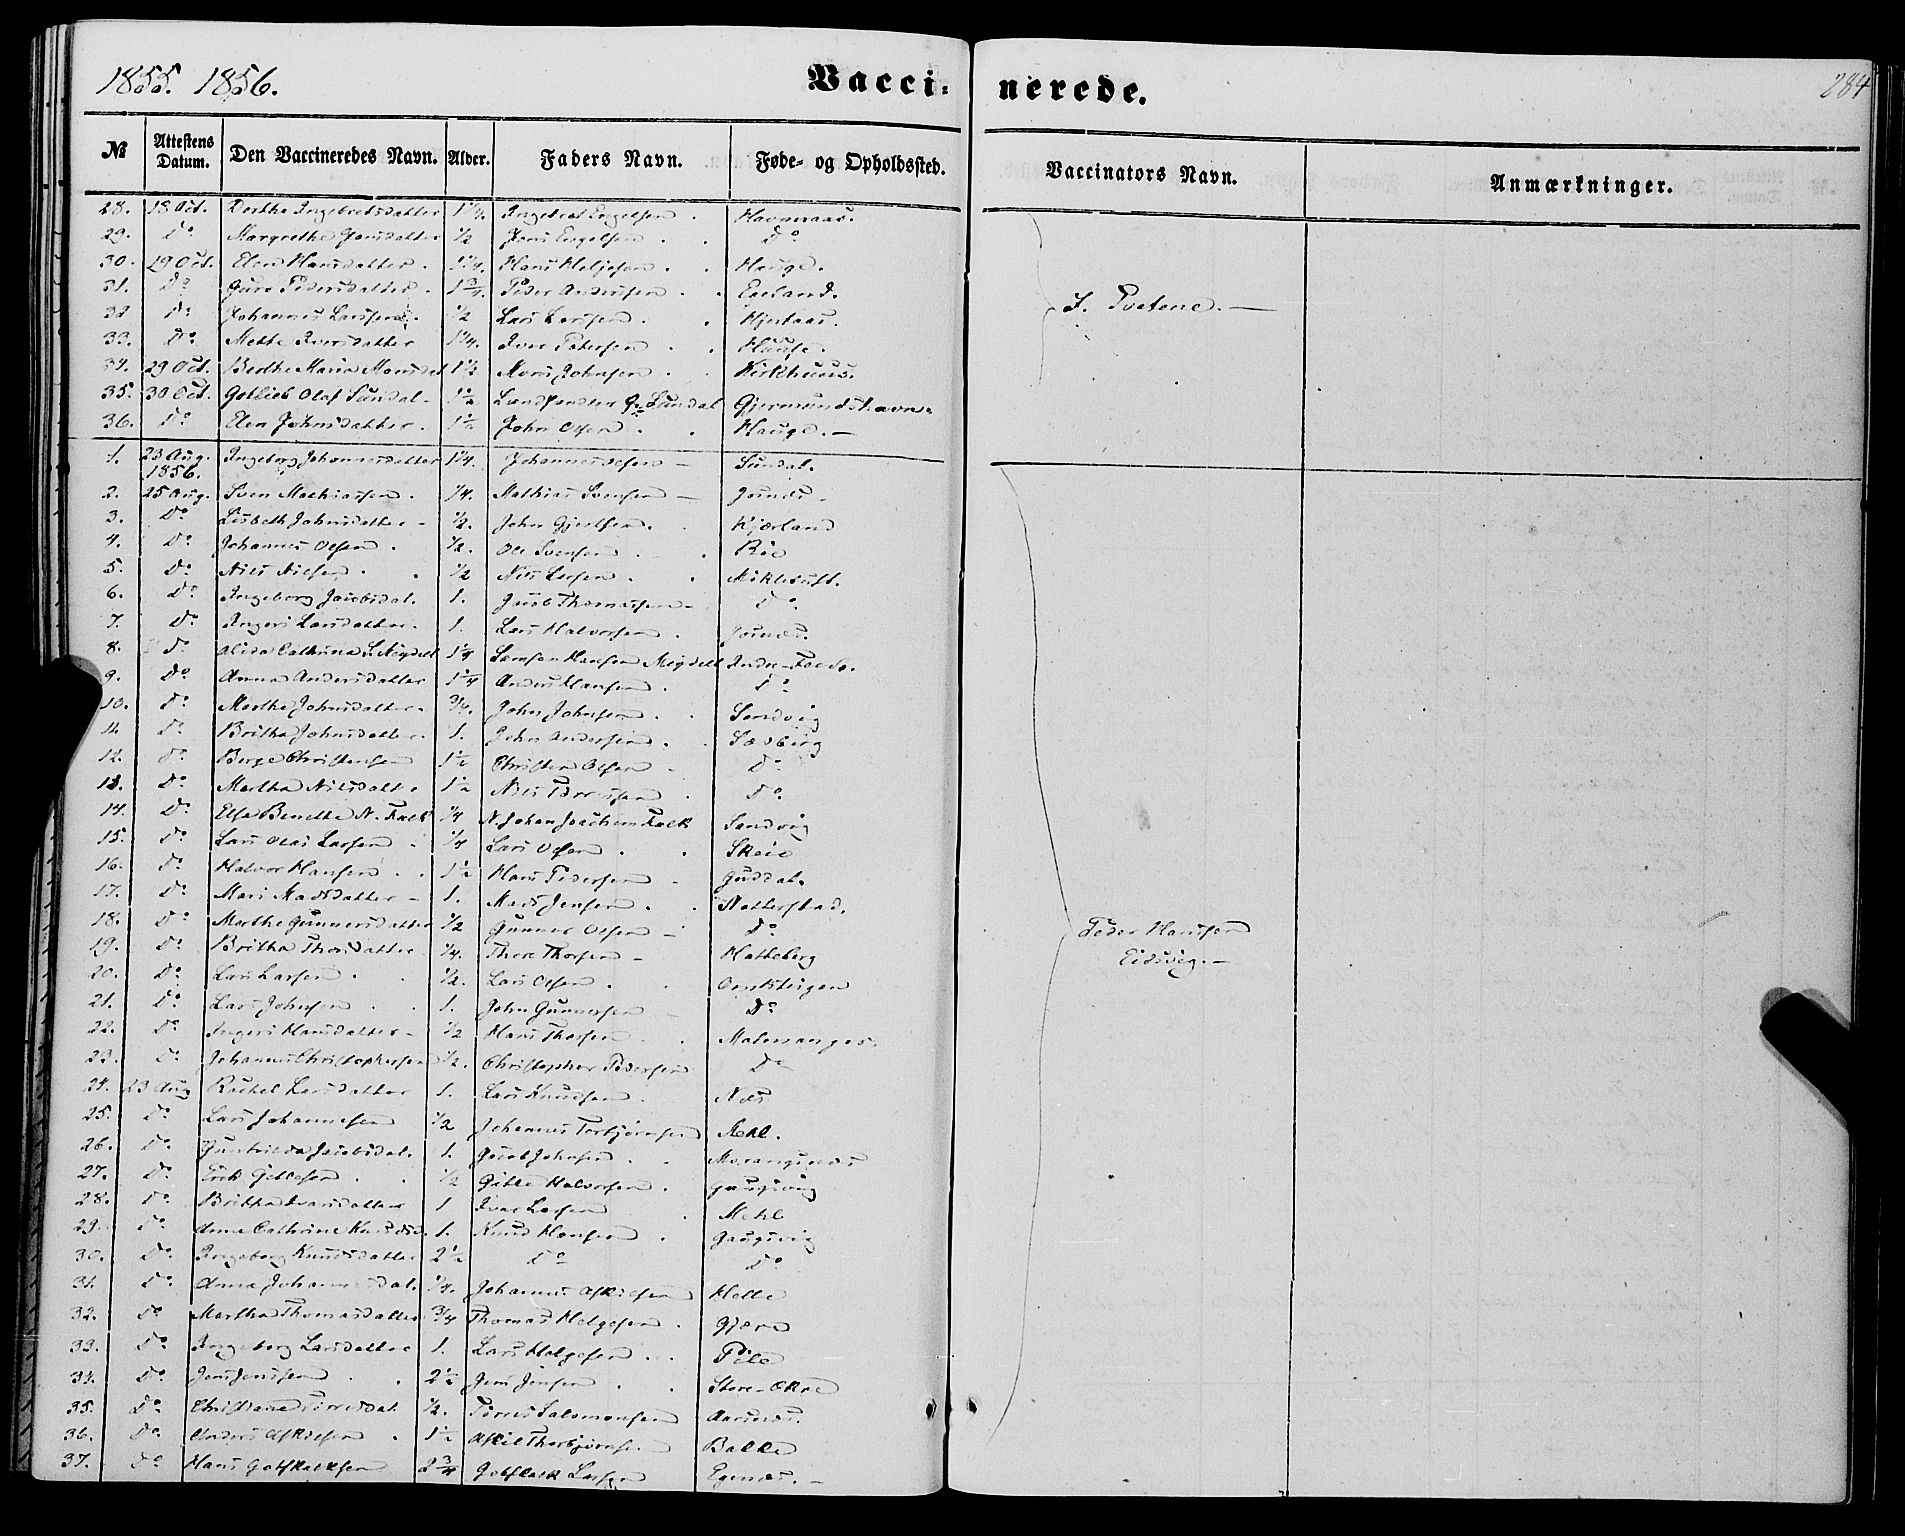 1855. 1856. Vacci- nerede. 284
№ Attestens Datum. Den Vaccineredes Navn. Alder. Faders Navn. Føde- og Opholdssted. Vaccinators Navn. Anmærkninger.
28. 18 Oct. Dorthe Ingebretsdatter 1 1/4. Ingebret Engelsen. Havneraas.
29. Do Margrethe Jensdatter 1/2 Jens Engelsen. Do
30. 19 Oct. Elen Hansdatter. 1 1/4. Hans Heljesen. Hauge.
31. Do Guro Pedersdatter. 1 3/4. Peder Andersen. Egeland.
32 Do Johannes Larssen. 1/2 Lars Larssen. Hjertaas. I. Tvetene.
33. Do Mette Iversdatter 1 1/4. Iver Petersen. Hauge.
34. 29 Oct. Berthe Maria Monsdat 1 1/2 Mons Johnsen. Kirkhuus.
35. 30 Oct. Gotlieb Olaf Sundal 1 1/2 Landhandler Sundal Gjermundshavn.
36. Do Elen Johnsdatter. 1 1/2 John Olsen. Hauge.
1. 23 Aug. 1856. Ingeborg Johannesdatter 1 1/4. Johannes Olsen Sundal.
2. 25 Aug. Sven Mathiassen. 1/4. Mathias Svensen
3. Do Lisbeth Johnsdatter 1/2. John Kjærland
4. Do Johannes Olsen. 1/2. Ole Svensen
5. Do Nils Nilsen. 1/2 Nils Miklebust.
6. Do Ingeborg Jacobsdat. 1. Jacob Thomassen Do
7. Do Ingeri Larsdatter. 1. Lars Halvorsen.
8. Do Alida Cathrina S. Meydell 1 1/4 Samson Hansen Meydell
9. Do Anna Andersdatter 1 1/4 Anders Hansen. Do
10. Do Marthe Johnsdatter. 3/4. John Johnsen. Sandvig
11. Do Britha Johnsdatter. 1. John Andersen. Sæberg
12. Do Berge Christensen 1 1/2 Christen Olsen Do
13. Do Martha Nilsdatt. 1 1/2 Nils Do
14. Do Else Benette N. Falk 1/4 N. Johan Joachim Falk Sandvig
15. Do Lars Olai Larsen 1/4 Lars Olsen. Skeie
16. Do Halvor Hansen 1 1/2 Hans Pedersen Guddal.
17. Do Mari Madsdatter 1. Mads Jensen. Natterstad.
18. Do Marthe Gunnersdatter 1/2 Gunner Olsen Do Peder Hanssen
19. Do Britha Thorsdatter 1/4. Thore Thorsen Hatteberg Eidsvig.
20. Do Lars Larsen 1/2. Lars Olsen. Omkstigen
21. Do Lars Johnsen 1. John Gunnersen Do
22. Do Ingeri Hansdatter 1/2 Hans Thorsen Malmanger.
23. Do Johannes Christophersen 1/2. Christopher Pedersen Do
24. 23 Aug Rachel Larsdatter 1. Lars Knudsen. Næs
25. Do Lars Johannesen 1/2 Johannes Torbjørnsen Mehl.
26. Do Gunhilda Jacobsdat. 1. Jacob Johnsen. Mauranger
27. Do Erik Gitlesen 1/2 Gitle Halvorsen. Gaugsvig
28. Do Britha Ivarsdatter 1 Ivar Larsen Mehl
29. Do Anne Cathrine Knudsd. 1. Knud Hansen Gaugsvig
30. Do Ingeborg Knudsdatter 2 1/2 Do Do
31. Do Anna Johannesdat. 1/4. Johannes Askilsen Helle
32. Do Martha Thomasdatter 3/4 Thomas Helgesen. Gjære
33. Do Ingeborg Larsdatter 1. Lars Helgesen Pile
34. Do Jens Jensen 2 1/2 Jens Jensen Store-
35. Do Christiane Tørresdat. 1/2. Tørres Salomonsen Aarsnes.
36. Do Anders Askilsen. 1 1/2 Askil Thorbjørnsen. Bakke
37. Do Hans Gotskalksen 2 3/4 Gotskalk Larsen Egenæs.